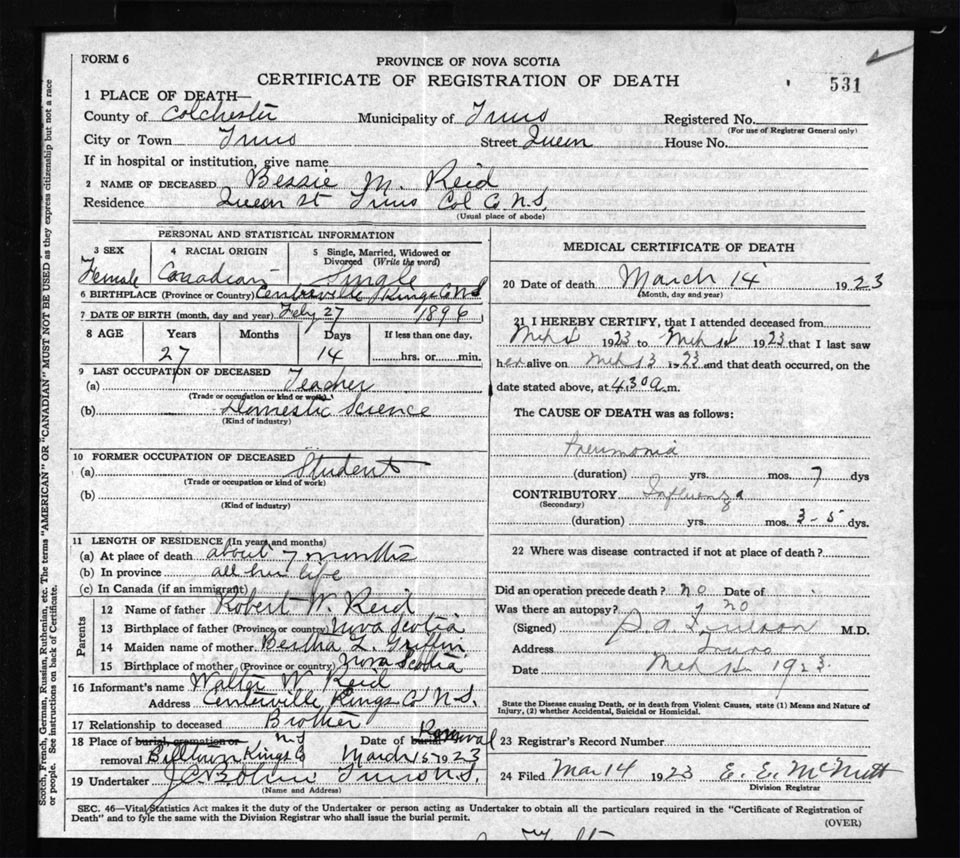 FORM 6
PROVINCE OF NOVA SCOTIA
CERTIFICATE OF REGISTRATION OF DEATH
531
1 PLACE OF DEATH—
County of Colchester Municipality of Truro Registered No.
(For use of Registrar General only)
City or Town Truro Street Queen House No.
If in hospital or institution, give name
2 NAME OF DECEASED Bessie M. Reid
Residence Queen St Truro Col Co. N.S.
(Usual place of abode)
PERSONAL AND STATISTICAL INFORMATION
3 SEX 4 RACIAL ORIGIN 5 Single, Married, Widowed or Divorced (Write the word)
Female Canadian Single
6 BIRTHPLACE (Province or Country) Centreville Kings Co NS
7 DATE OF BIRTH (month, day and year) Feby 27 1896
8 AGE Years Months Days If less than one day,
27 14 hrs. or min.
9 LAST OCCUPATION OF DECEASED
(a) Teacher
(Trade or occupation or kind of work)
(b) Domestic Science
(Kind of industry)
10 FORMER OCCUPATION OF DECEASED
(a) Student
(Trade or occupation or kind of work)
(b)
(Kind of industry)
11 LENGTH OF RESIDENCE (In years and months)
(a) At place of death about 7 months
(b) In province all her life
(c) In Canada (if an immigrant)
Parents
12 Name of father Robert W. Reid
13 Birthplace of father (Province or country) Nova Scotia
14 Maiden name of mother Bertha L. Griffin
15 Birthplace of mother (Province or country) Nova Scotia
16 Informant's name Walter W Reid
Address Centerville Kings Co N.S.
17 Relationship to deceased Brother
18 Place of burial, cremation or removal Billtown Kings Co N.S Date of burial Removal March 15 1923
19 Undertaker Truro N.S.
(Name and Address)
MEDICAL CERTIFICATE OF DEATH
20 Date of death March 14 1923
(Month, day and year)
21 I HEREBY CERTIFY, that I attended deceased from
1923 to 1923 that I last saw
her alive on Mch 13 1923 and that death occurred, on the
date stated above, at 4.30 a.m.
The CAUSE OF DEATH was as follows:
Pneumonia
(duration) yrs. mos. 7 dys
CONTRIBUTORY Influenza
(Secondary)
(duration) yrs. mos. 3-5 dys.
22 Where was disease contracted if not at place of death?
Did an operation precede death? no Date of
Was there an autopsy? no
(Signed) M.D.
Address Truro
Date Mch 1923
State the Disease causing Death, or in death from Violent Causes, state (1) Means and Nature of
Injury, (2) whether Accidental, Suicidal or Homicidal.
23 Registrar's Record Number
24 Filed Mar 14 1923 E. E. McNutt
Division Registrar
SEC. 46—Vital Statistics Act makes it the duty of the Undertaker or person acting as Undertaker to obtain all the particulars required in the "Certificate of Registration of
Death" and to fyle the same with the Division Registrar who shall issue the burial permit.
(OVER)
Scotch, French, German, Russian, Ruthenian, etc. The terms "AMERICAN" OR "CANADIAN" MUST NOT BE USED as they express citizenship but not a race
or people. See instructions on back of Certificate.